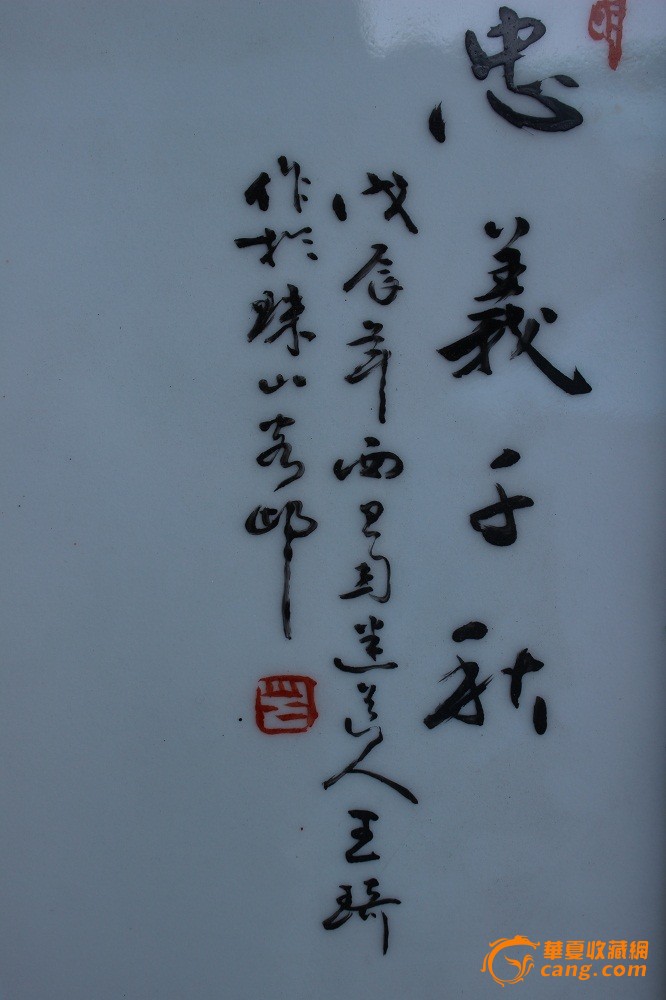 忠義千秋
戊辰年西昌陶迷道人王琦
作於珠山客邸
華夏收藏網
cang.com